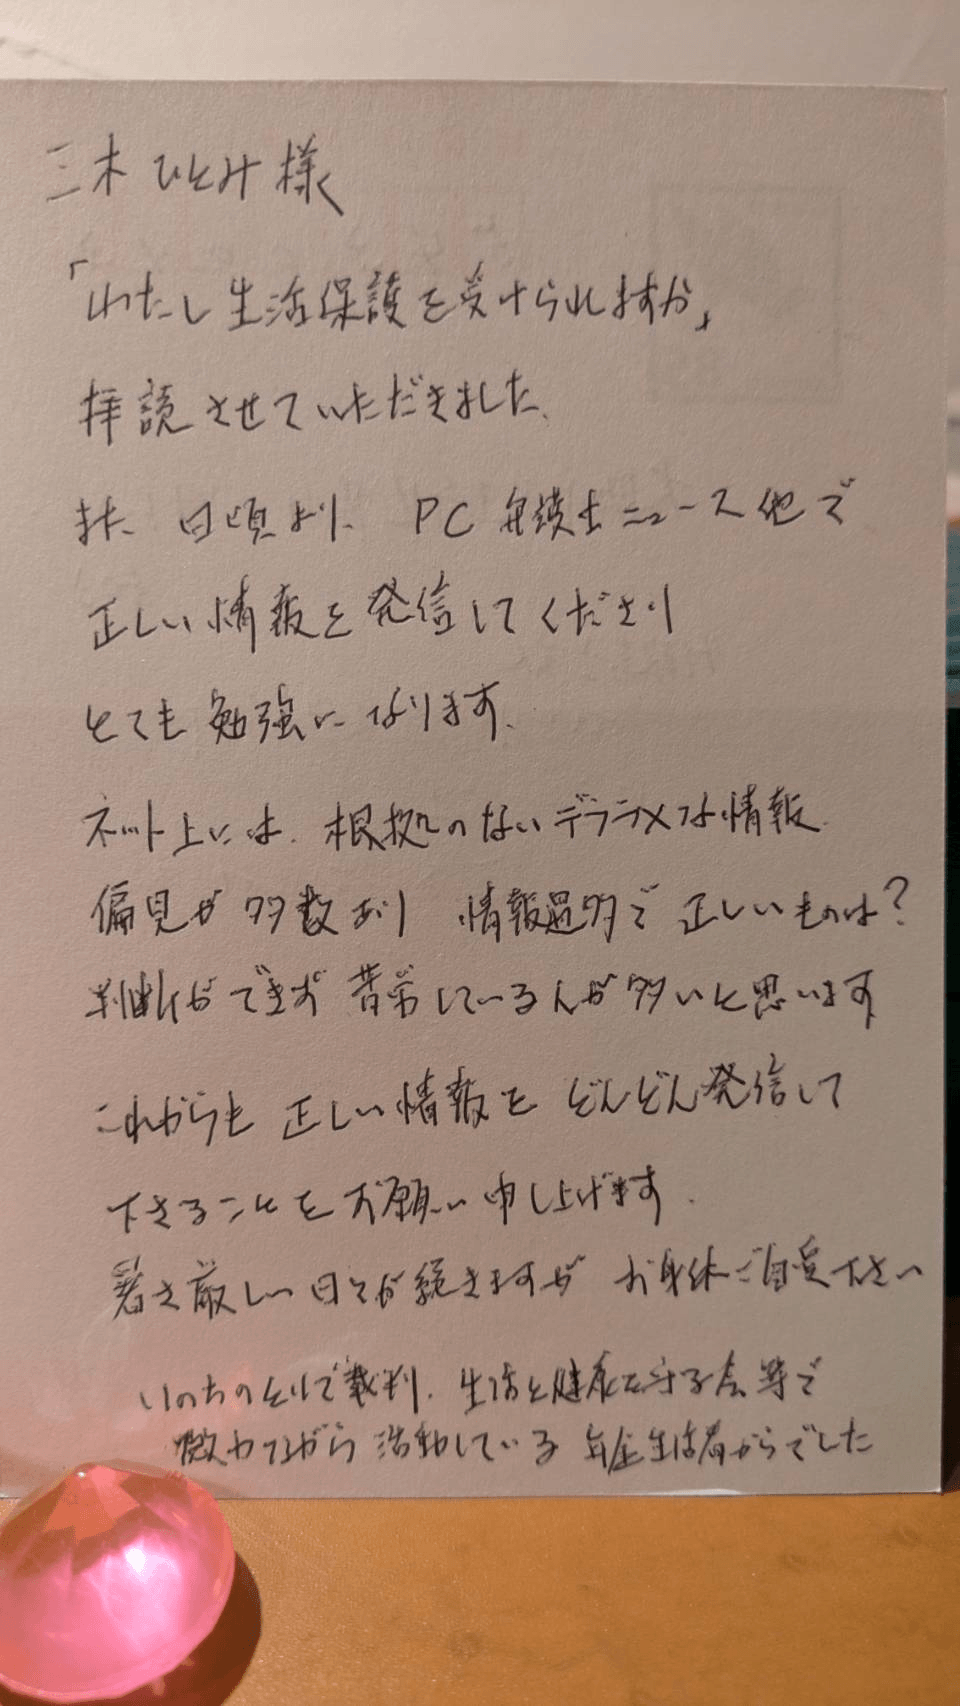 三木ひとみ様
「わたし生活保護を受けられますか」
拝読させていただきました、
また 日頃より、 PC 弁護士ニュース他で
正しい情報を発信してくださり
とても勉強になります、
ネット上には、根拠のないデララメな情報、
偏見が多数あり 情報過多で 正しいものは?
判断ができず 苦労している人が多いと思います
これからも 正しい情報を どんどん発信して
下さることをお願い申し上げます、
暑さ厳しい日々が続きますが お身体ご自愛下さい
いのちのとりで裁判、生活と健康を守る会等で
微力ながら 活動している 年金生活者からでした